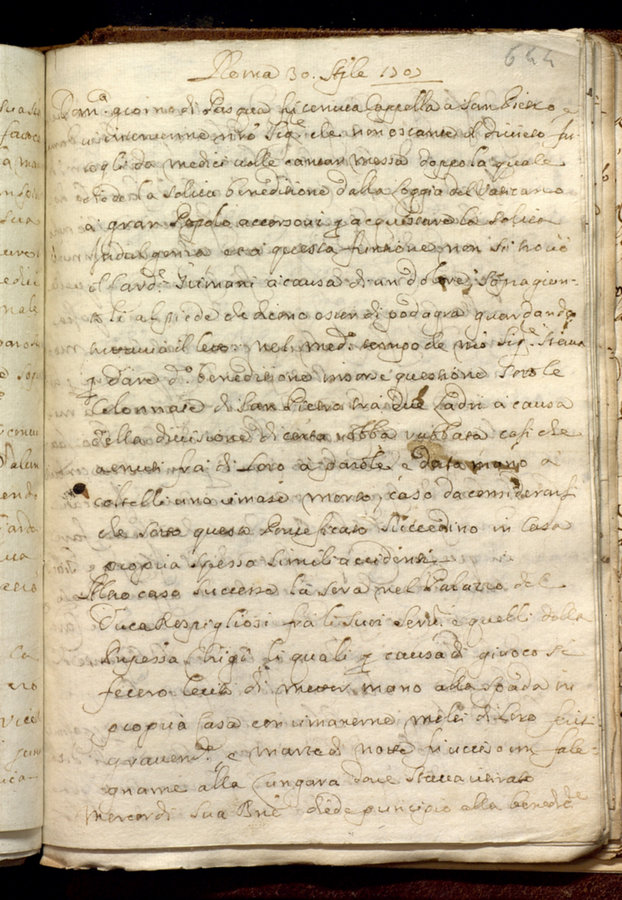 644
Roma 30. Aple 1707
Dom.ca giorno di Pasqua si tenne Cappella a San Pietro e
intervenne nro Sig.re che non ostante il divieto fat-
togli da medici volle cantar messa doppo la quale
diede la solita benedizione dalla loggia del Vaticano
a gran Popolo accorsovi p acquistare la solita
Indulgenza et a questa funzione non si trovò
il Card. Grimani a causa di un dolore sopragion-
toli al piede che dicono esser di podagra guardando
tuttavia il letto: nel med.o tempo che nro Sig.re stava
p dare d.a benedizione inorse questione sotto le
Colonnate di San Pietro tra due Ladri a causa
della divisione di certa robba rubbata così che
venuti fra di loro a parole e data mano a
coltelli uno rimase morto, caso da considerarsi
che sotto questo Pontificato succedino in Casa
propria spesso simili accidenti
Altro caso successe la sera nel Palazzo del
Duca Rospigliosi fra li suoi Serv.ri e quelli della
Pnpessa Chigi li quali p causa di giuoco si
fecero lecito di metter mano alla spada in
propria casa con rimanerne molti di loro feriti
gravem.te, e martedì notte fu ucciso un fale-
gname alla Lungara dove stava ritirato
Mercordì Sua Bne diede principio alla bened.ne